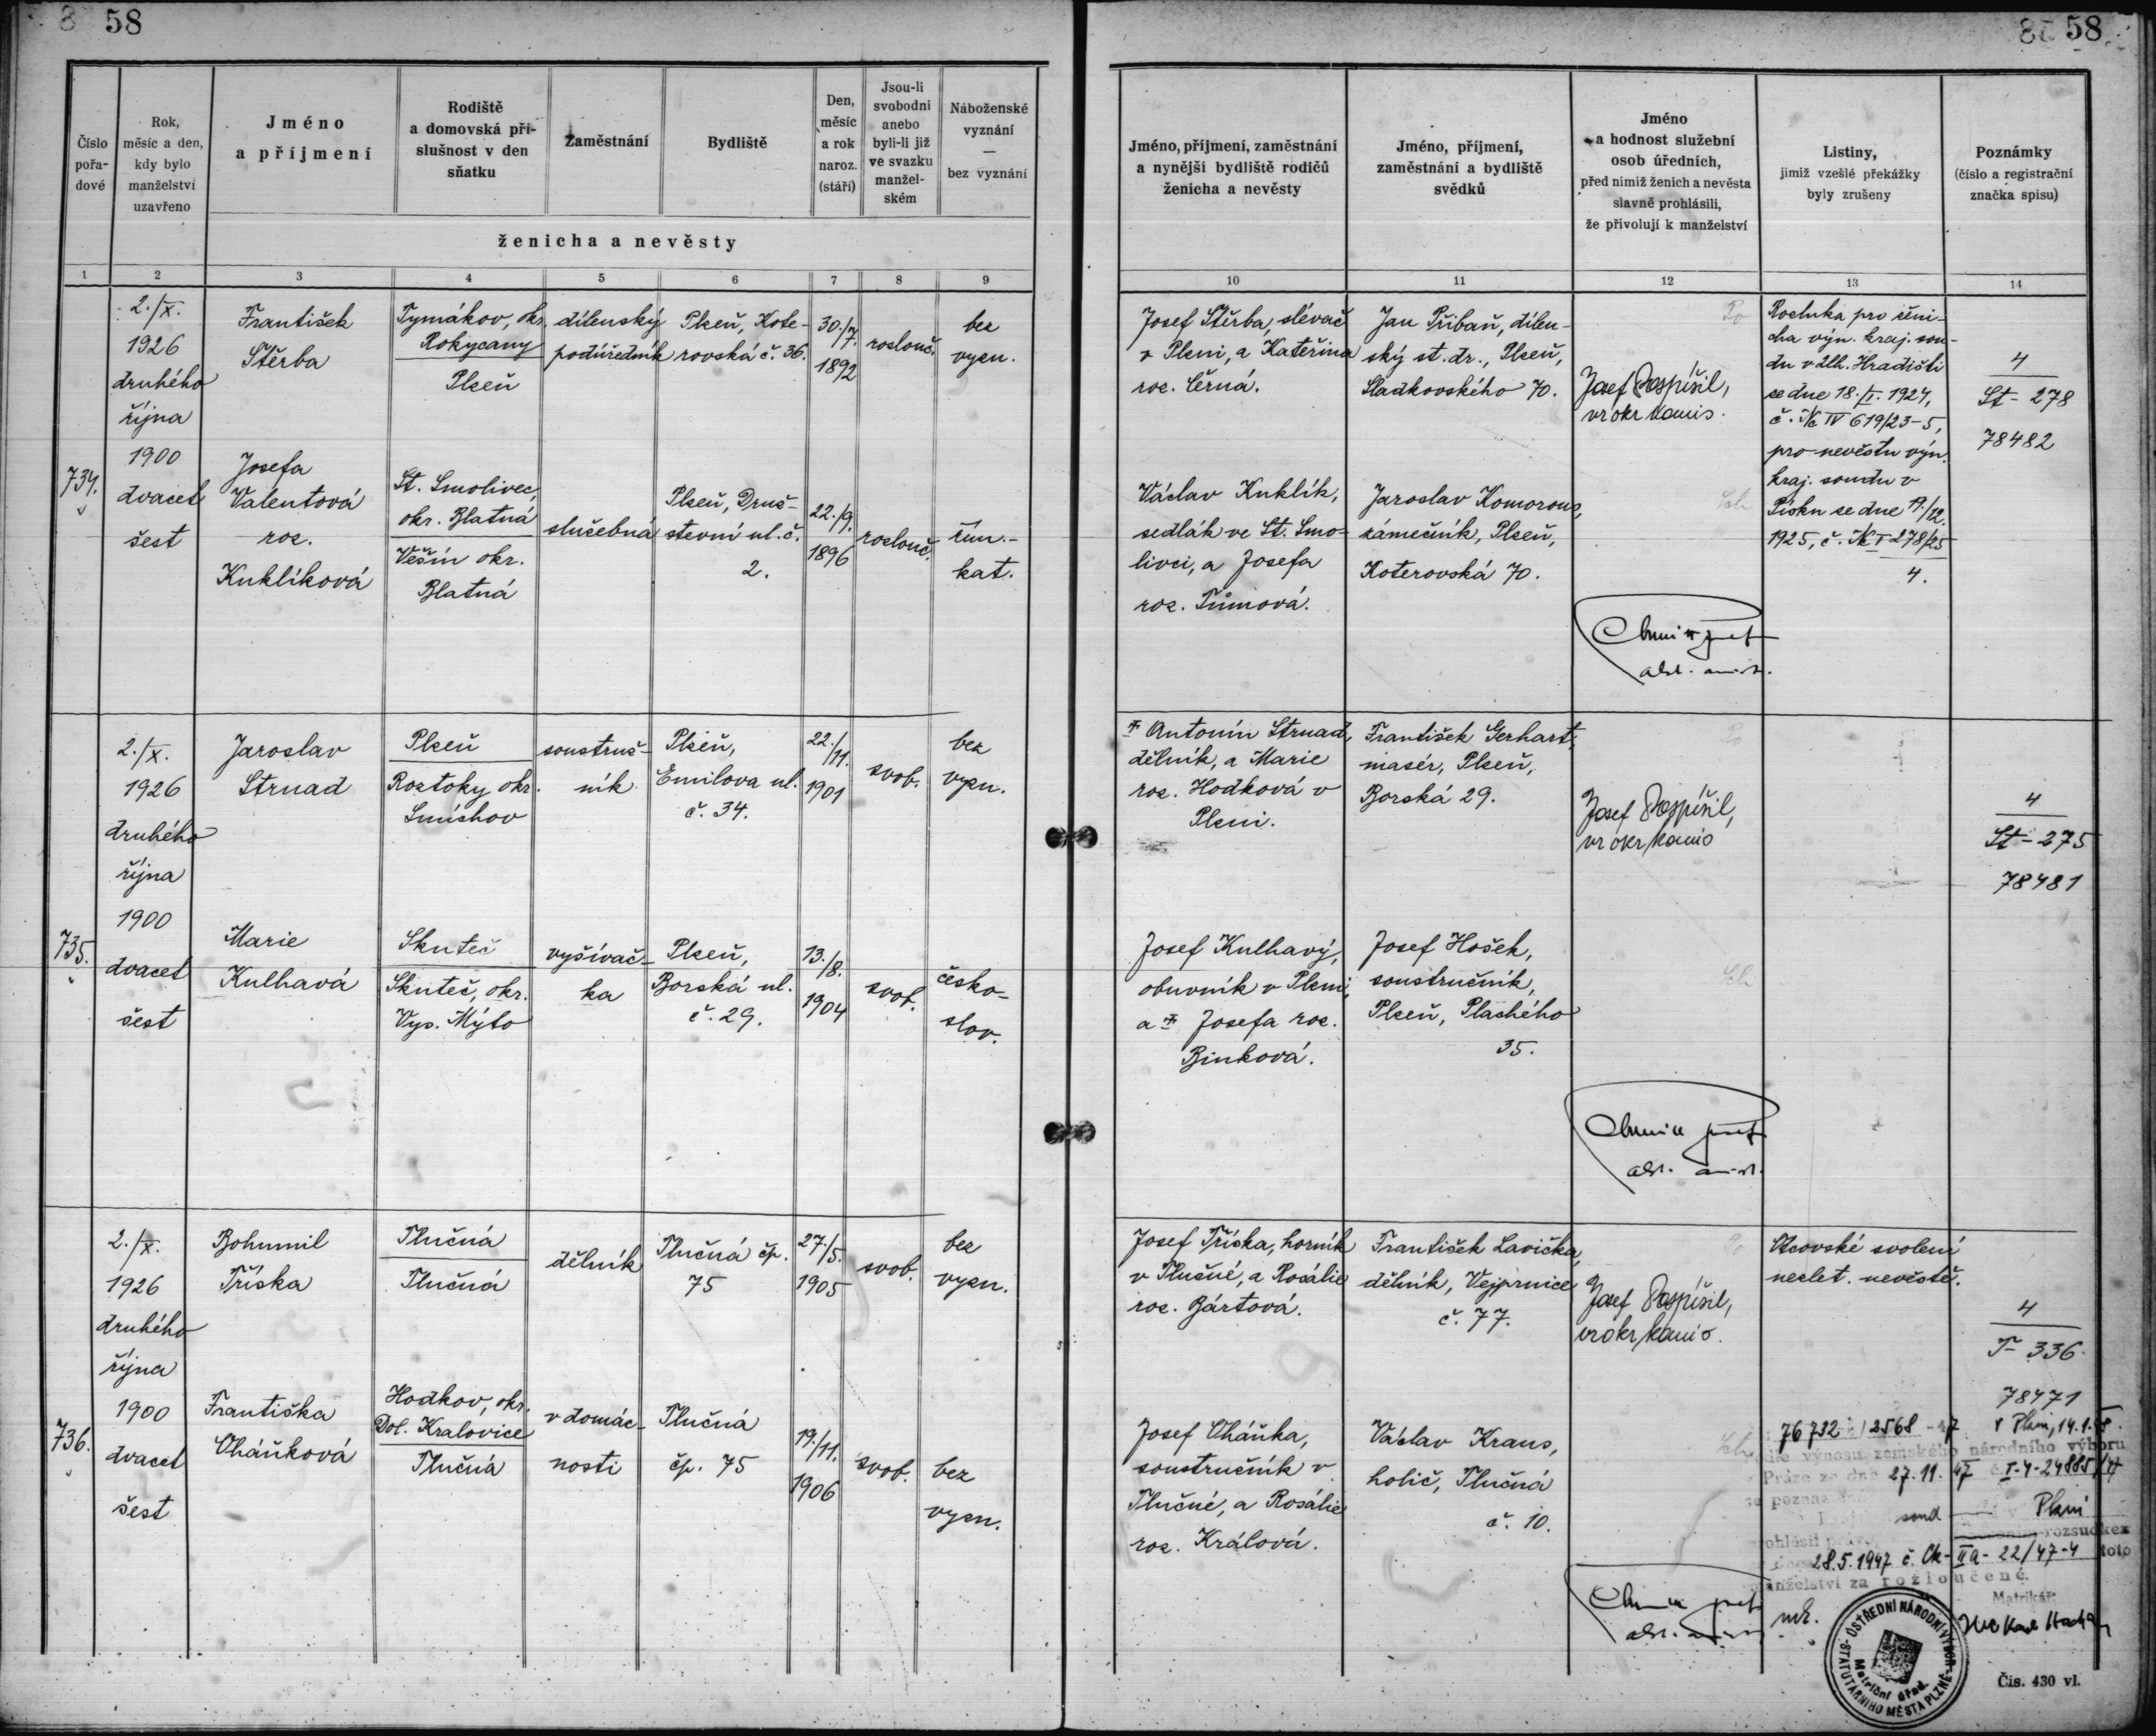 58
58
Číslo pořa-dové
Rok, měsíc a den, kdy bylo manželství uzavřeno
Jméno a příjmení
Rodiště a domovská pří-slušnost v den sňatku
Zaměstnání
Bydliště
Den, měsíc a rok naroz. (stáří)
Jsou-li svobodni anebo byli-li již ve svazku manžel-ském
Náboženské vyznání — bez vyznání
ženicha a nevěsty
Jméno, příjmení, zaměstnání a nynější bydliště rodičů ženicha a nevěsty
Jméno, příjmení, zaměstnání a bydliště svědků
Jméno a hodnost služební osob úředních, před nimiž ženich a nevěsta slavně prohlásili, že přivolují k manželství
Listiny, jimiž vzešlé překážky byly zrušeny
Poznámky (číslo a registrační značka spisu)
1 2 3 4 5 6 7 8 9 10 11 12 13 14
734.
2./X.
1926
druhého
října
1900
dvacet
šest
František
Štěrba
Tymákov, okr.
Rokycany
Plzeň
dílenský
podúředník
Plzeň, Kote-
rovská č. 36.
30./7.
1892
rozlouč.
bez
vyzn.
Josef Štěrba, slévač
v Plzni, a Kateřina
roz. Černá.
Jan Přibaň, dílen-
ský st. dr., Plzeň,
Sladkovského 70.
Josef Pospíšil,
vr okr komis.
Rozluka pro ženi-
cha výn. kraj. sou-
du v Uh. Hradišti
ze dne 18./I. 1924,
č. Nc IV 619/23-5,
pro nevěstu výn.
kraj. soudu v
Písku ze dne 17./12.
1925, č. Nc I 278/25
4.
4
Št-278
78482
Josefa
Valentová
roz.
Kuklíková
St. Smolivec,
okr. Blatná
Věšín okr.
Blatná
služebná
Plzeň, Druž-
stevní ul. č.
2.
22./9.
1896
rozlouč.
řím.-
kat.
Václav Kuklík,
sedlák ve St. Smo-
livci, a Josefa
roz. Tůmová.
Jaroslav Komorous,
zámečník, Plzeň,
Koterovská 70.
735.
2./X.
1926
druhého
října
1900
dvacet
šest
Jaroslav
Strnad
Plzeň
Roztoky okr.
Smíchov
soustruž-
ník
Plzeň,
Emilova ul.
č. 34.
22./
11.
1901
svob.
bez
vyzn.
Antonín Strnad,
dělník, a Marie
roz. Hodková v
Plzni.
František Gerhart,
masér, Plzeň,
Borská 29.
Josef Pospíšil,
vr okr komis
4
St-275
78481
Marie
Kulhavá
Skuteč
Skuteč, okr.
Vys. Mýto
vyšívač-
ka
Plzeň,
Borská ul.
č. 29.
13./8.
1904
svob.
česko-
slov.
Josef Kulhavý,
obuvník v Plzni,
a Josefa roz.
Binková.
Josef Hošek,
soustružník,
Plzeň, Plachého
35.
736.
2./X.
1926
druhého
října
1900
dvacet
šest
Bohumil
Tříska
Tlučná
Tlučná
dělník
Tlučná čp.
75
27./5.
1905
svob.
bez
vyzn.
Josef Tříska, horník
v Tlučné, a Rosálie
roz. Bártová.
František Lavička,
dělník, Vejprnice
č. 77.
Josef Pospíšil,
vr okr komis.
Otcovské svolení
nezlet. nevěstě.
4
T-336
78471
Františka
Cháňková
Hodkov, okr.
Dol. Kralovice
Tlučná
v domác-
nosti
Tlučná
čp. 75
19./11.
1906
svob.
bez
vyzn.
Josef Cháňka,
soustružník v
Tlučné, a Rosálie
roz. Králová.
Václav Kraus,
holič, Tlučná
č. 10.
76732 12568-47 V Plzni, 14.1.48.
výnosu zemského národního výboru
Praze ze dne 27.11.47 č. I-4-24885/47
soud v Plzni
rozsudkem
28.5.1947 č. Ck-IIa-22/47-4 toto
manželství za rozloučené.
Matrikář:
ÚSTŘEDNÍ NÁRODNÍ VÝBOR STATUTÁRNÍHO MĚSTA PLZNĚ
Matriční úřad.
Čís. 430 vl.